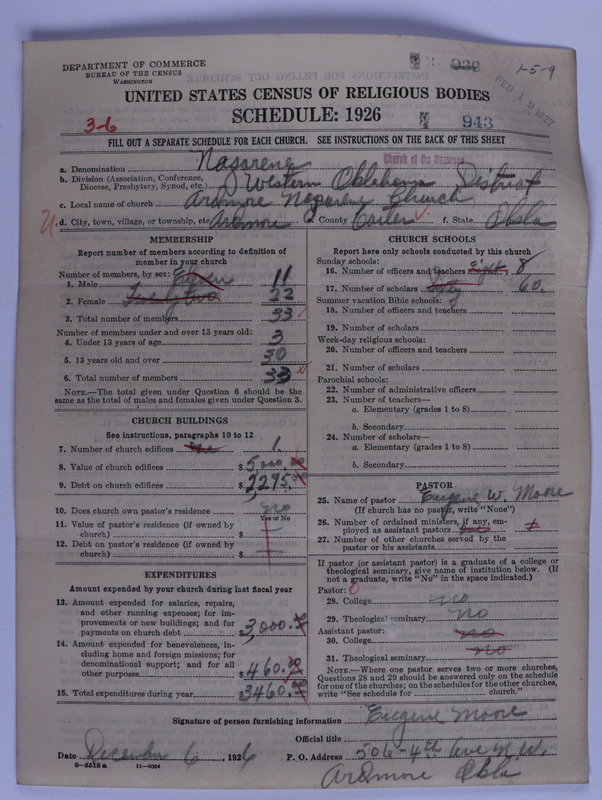 DEPARTMENT OF COMMERCE
BUREAU OF THE CENSUS
WASHINGTON
1-5-9
UNITED STATES CENSUS OF RELIGIOUS BODIES
SCHEDULE: 1926
3-6
943
FILL OUT A SEPARATE SCHEDULE FOR EACH CHURCH. SEE INSTRUCTIONS ON THE BACK OF THIS SHEET
Church of the Nazarene
a. Denomination Nazarene
b. Division (Association, Conference, Diocese, Presbytery, Synod, etc.) Western Oklahoma District
c. Local name of church Ardmore Nazarene Church
d. City, town, village, or township, etc. Ardmore e. County Carter f. State Okla
MEMBERSHIP
Report number of members according to definition of
member in your church
Number of members, by sex:
1. Male Eleven 11
2. Female 22
3. Total number of members 33
Number of members under and over 13 years old:
4. Under 13 years of age 3
5. 13 years old and over 30
6. Total number of members 33
NOTE.—The total given under Question 6 should be the
same as the total of males and females given under Question 3.
CHURCH BUILDINGS
See instructions, paragraphs 10 to 12
7. Number of church edifices 1
8. Value of church edifices $5,000.00
9. Debt on church edifices $2275.00
10. Does church own pastor's residence no
Yes or No
11. Value of pastor's residence (if owned by
church) $
12. Debt on pastor's residence (if owned by
church) $
EXPENDITURES
Amount expended by your church during last fiscal year
13. Amount expended for salaries, repairs,
and other running expenses; for im-
provements or new buildings; and for
payments on church debt $3,000.00
14. Amount expended for benevolences, in-
cluding home and foreign missions; for
denominational support; and for all
other purposes $460.00
15. Total expenditures during year 3460.00
CHURCH SCHOOLS
Report here only schools conducted by this church
Sunday schools:
16. Number of officers and teachers Eight 8
17. Number of scholars 60.
Summer vacation Bible schools:
18. Number of officers and teachers
19. Number of scholars
Week-day religious schools:
20. Number of officers and teachers
21. Number of scholars
Parochial schools:
22. Number of administrative officers
23. Number of teachers—
a. Elementary (grades 1 to 8)
b. Secondary
24. Number of scholars—
a. Elementary (grades 1 to 8)
b. Secondary
PASTOR
25. Name of pastor Eugene W. Moore
(If church has no pastor, write "None")
26. Number of ordained ministers, if any, em-
ployed as assistant pastors
27. Number of other churches served by the
pastor or his assistants
If pastor (or assistant pastor) is a graduate of a college or
theological seminary, give name of institution below. (If
not a graduate, write "No" in the space indicated.)
Pastor: 0
28. College no
29. Theological seminary no
Assistant pastor:
30. College no
31. Theological seminary no
NOTE.—Where one pastor serves two or more churches,
Questions 28 and 29 should be answered only on the schedule
for one of the churches; on the schedules for the other churches,
write "See schedule for church."
Signature of person furnishing information Eugene Moore
Official title
Date December 6, 1926 P. O. Address 506-4th Ave N.W.
8—5518a 11—9084 Ardmore Okla